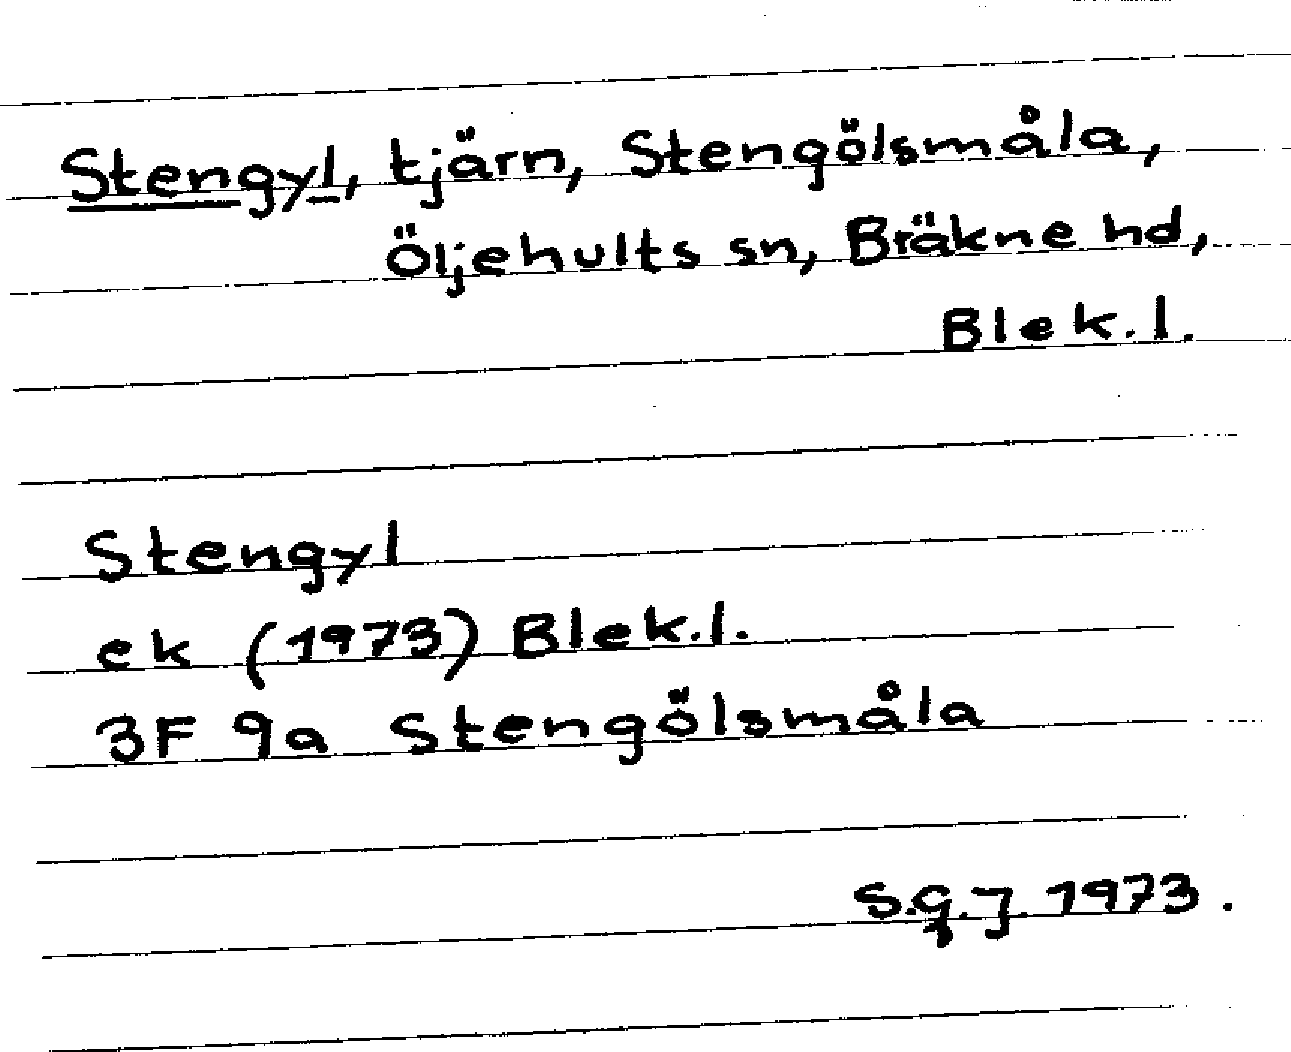 Stengyl, tjärn, Stengölsmåla,
Öljehults sn, Bräkne hd,
Blek.l.
Stengyl
ek (1973) Blek.l.
3F 9a Stengölsmåla
S.G.J. 1973.